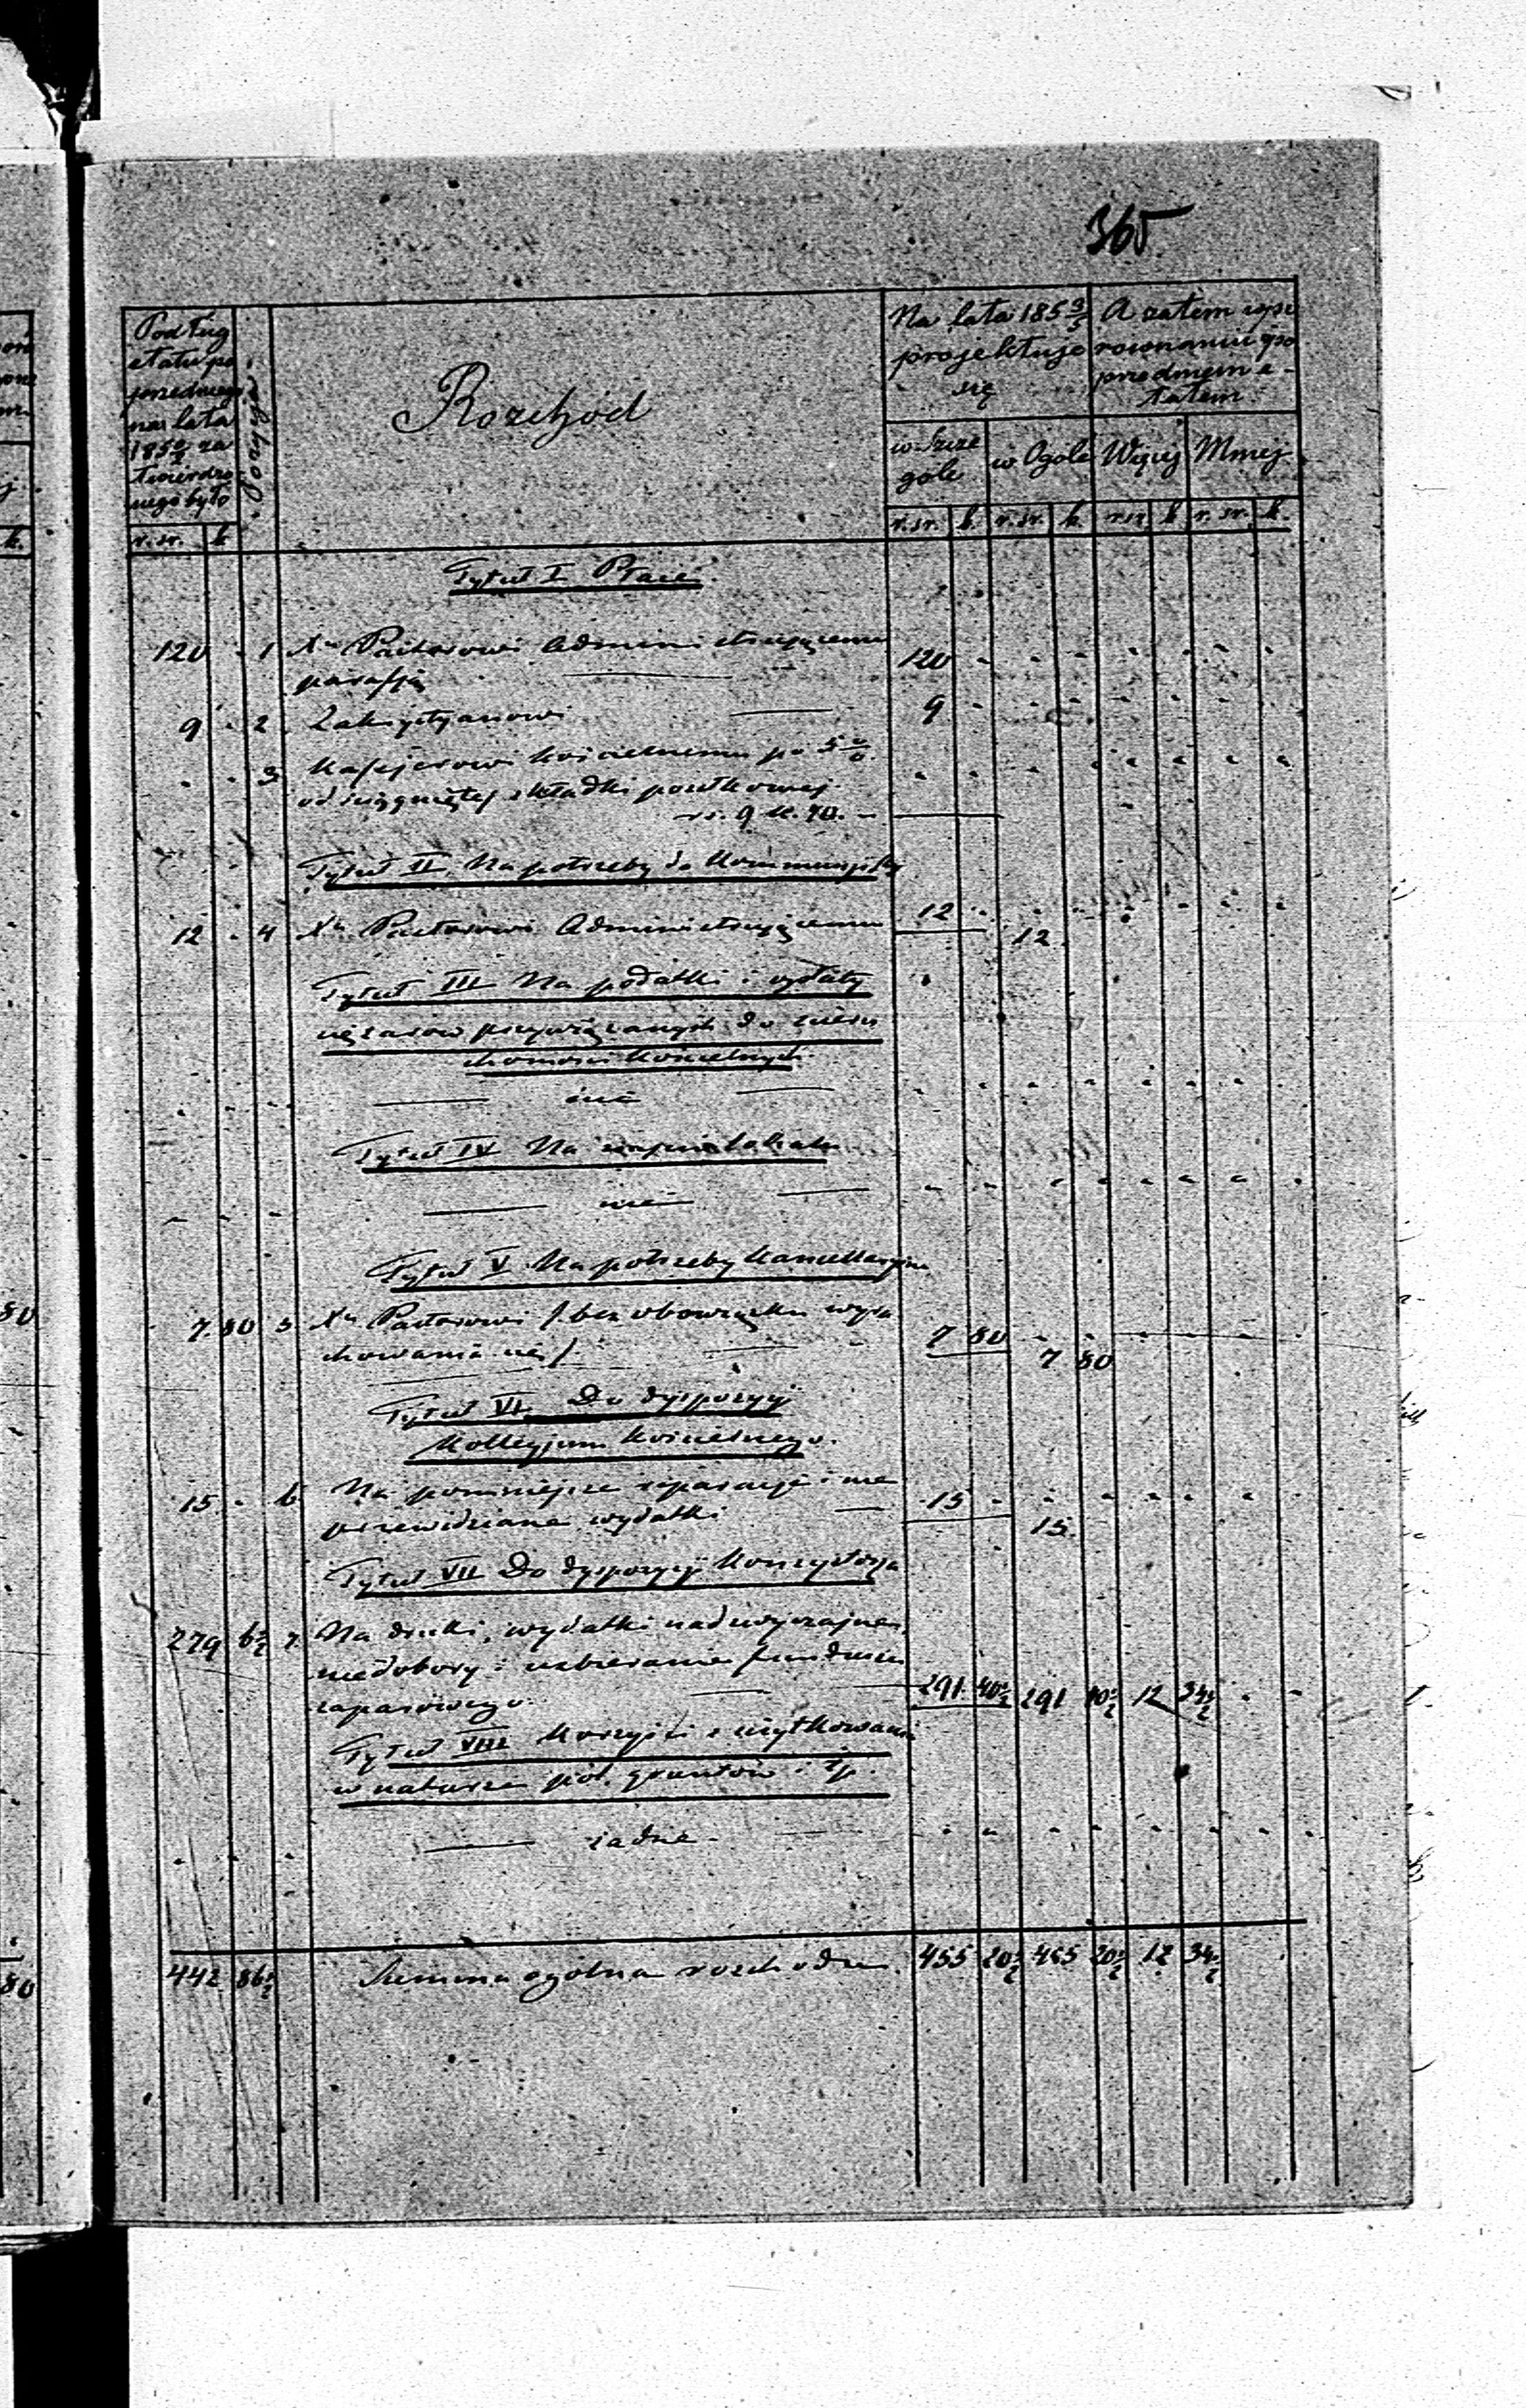 365
Podług
etatu po
przedniego
na lata
1850/2 za
twierdzo
nego było
Pozycja
Rozchód
Na lata 1853/5
projektuje
się
A zatem w po
rownaniu z po
przedniem e-
tatem
w Szcze
góle
w Ogóle
Więcej
Mniej
r. sr. k. r. sr. k. r. sr. k. r. sr. k. r. sr. k.
Tytuł I Płace
120 - 1 Xu Pastorowi Administrującemu 120 -
parafją
9 - 2 Zakrystyanowi 9 -
- - 3 Kassjerowi kościelnemu po 5 %
od ściągniętej składki posiłkowej
rs. 9 k. 90.
Tytuł II Na potrzeby do Kommunji
12 - 4 Xu Pastorowi Administrującemu 12 - 12
Tytuł III Na podatki i opłaty
ciężarów przywiązanych do nieru
chomości kościelnych
nic
Tytuł IV Na najem lokalu
nic
Tytuł V Na potrzeby kancellaryjne
7 80 5 Xu Pastorowi /bez obowiązku wyra
chowania się/ 7 80 7 80
Tytuł VI Do dyspozycji
Kollegjum kościelnego.
15 - 6 Na pomniejsze reparacje i nie
przewidziane wydatki 15 - 15
Tytuł VII Do dyspozycji Konsystorza
279 6½ 7 Na druki, wydatki nadzwyczajne,
niedobory i uzbieranie funduszu
zapasowego 291 40½ 291 40½ 12 34½
Tytuł VIII Korzyści z użytkowania
w naturze pól, gruntów i tp.
żadne
442 86½ Summa ogólna rozchodu 455 20½ 455 20½ 12 34½